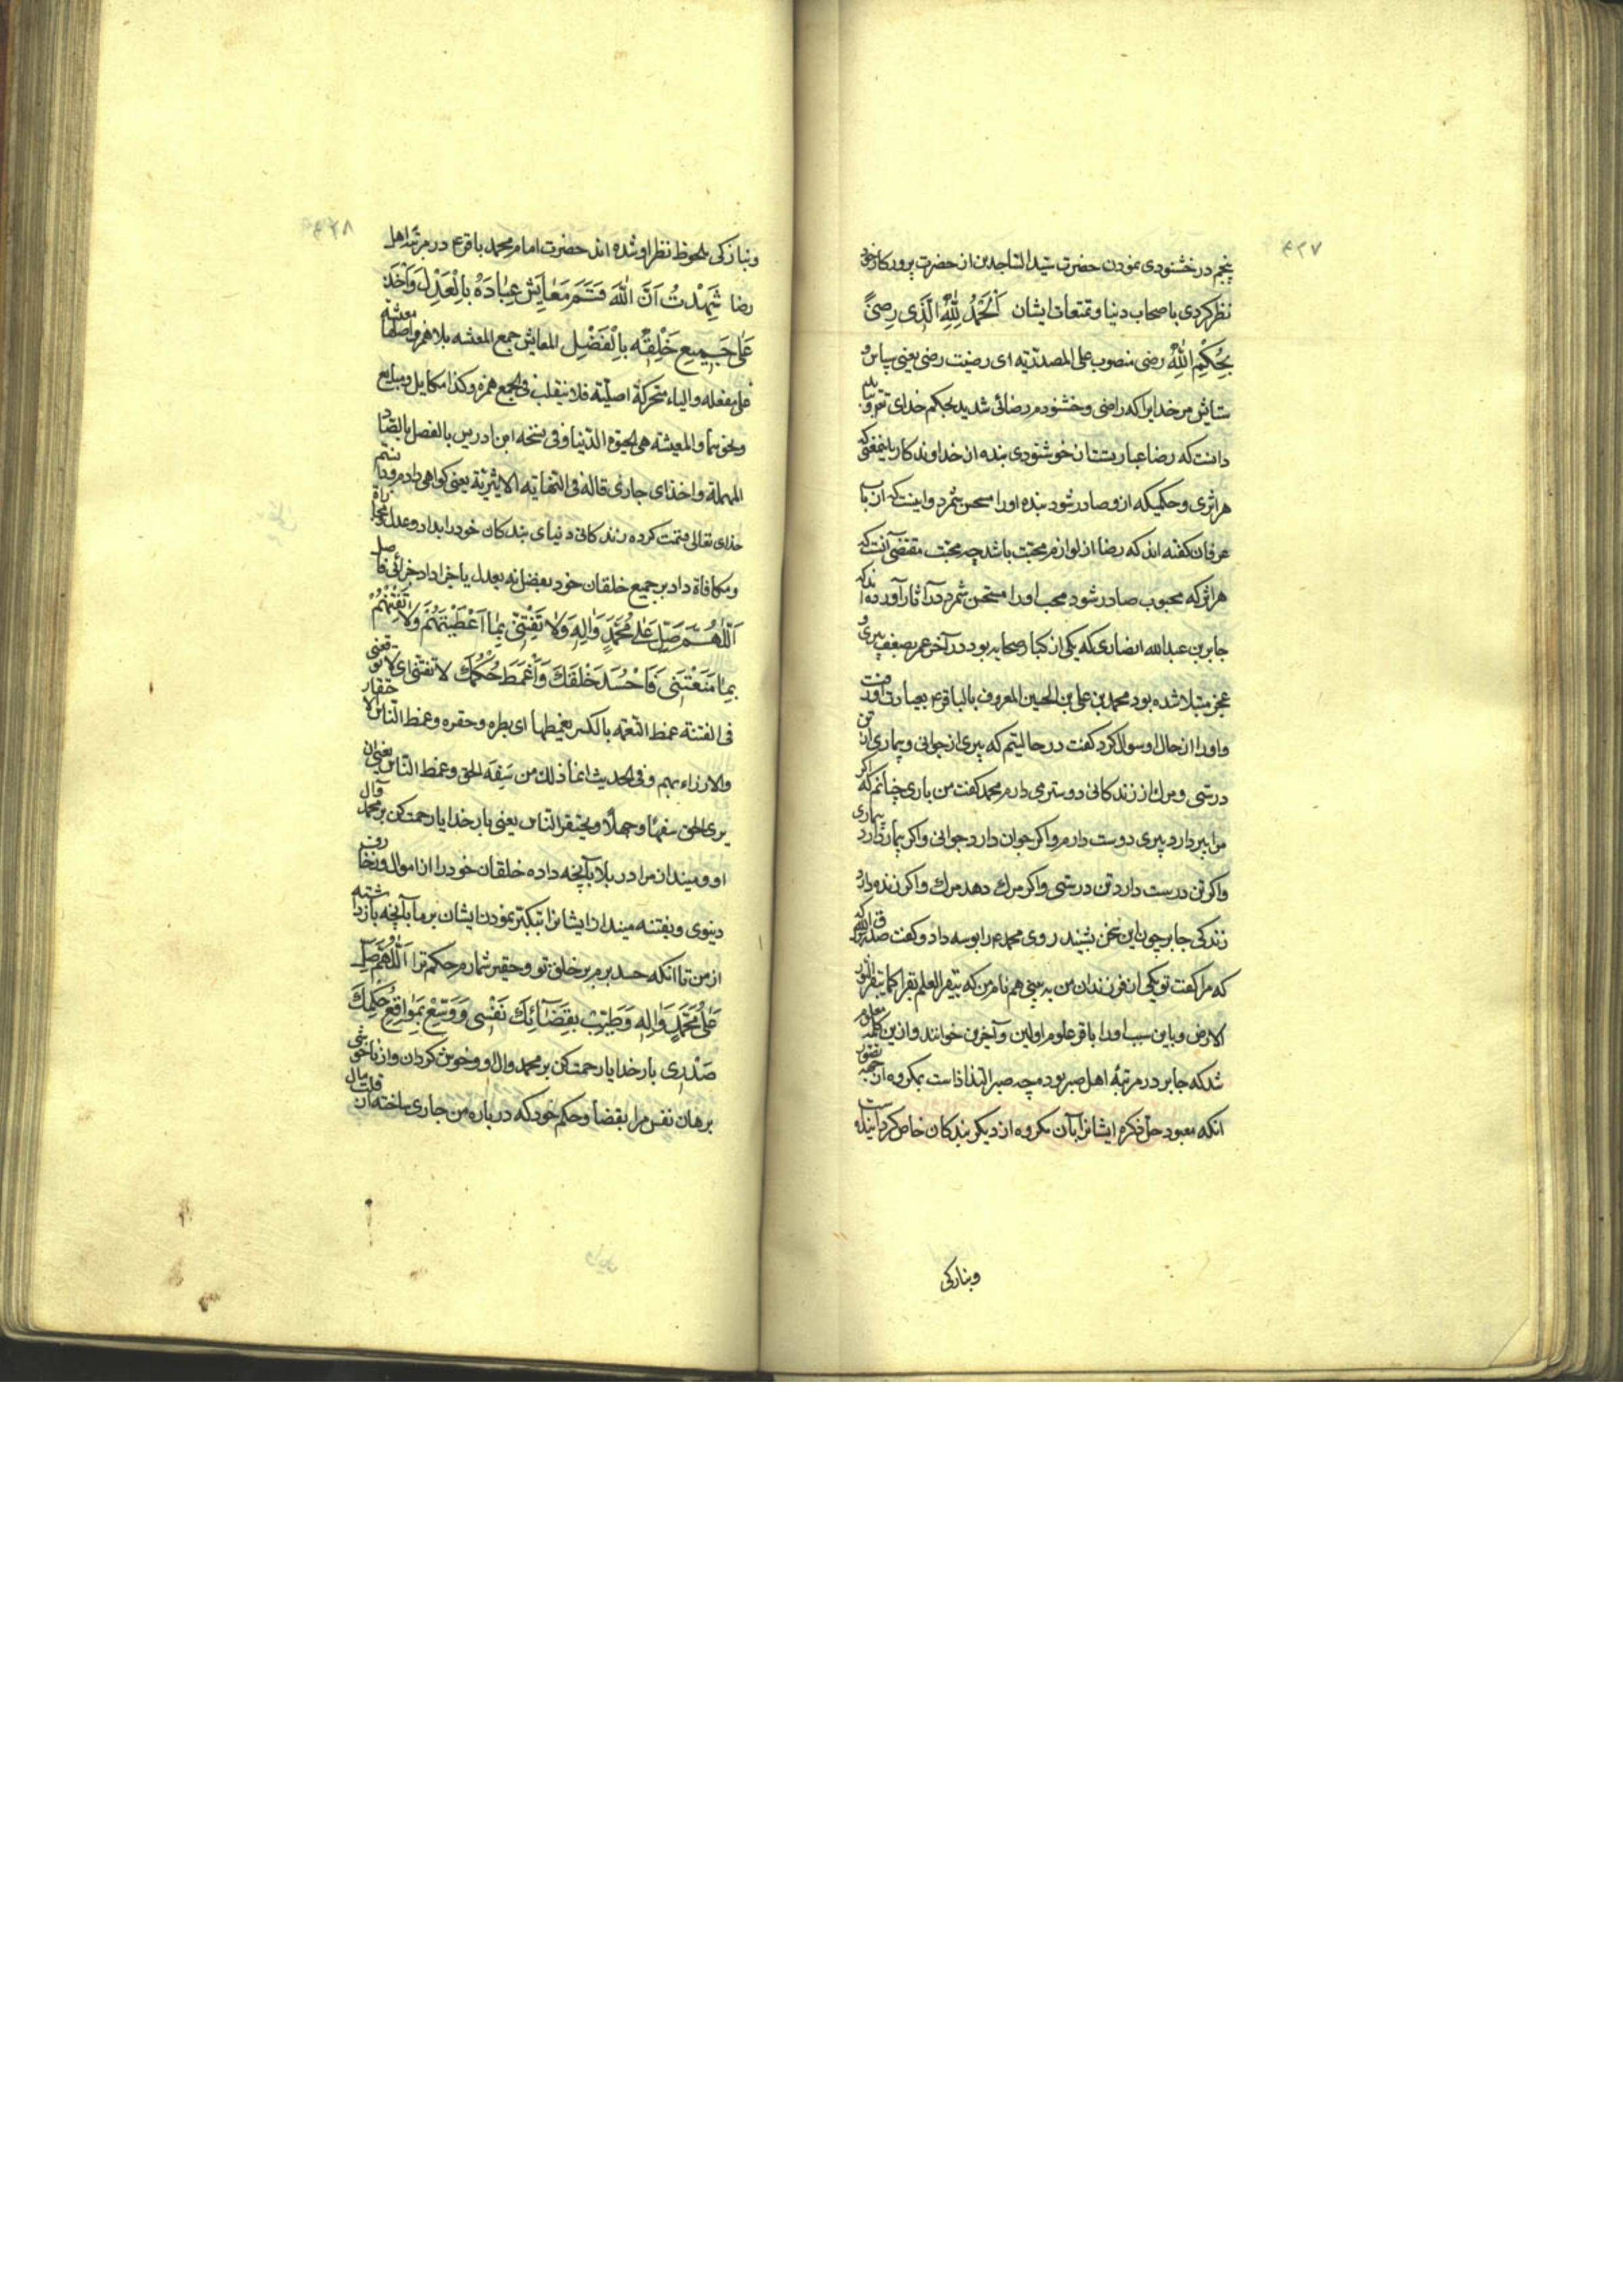 ۴۲۷
پنجم در خشنودی نمودن حضرت سید الساجدین از حضرت پروردکار خود
نظر کردی باصحاب دنیا و تمتعات ایشان اَلْحَمْدُ لِلّٰهِ الَّذی رِضیً
بِحُکْمِ اللّٰهِ رضی منصوب علی المصدریه ای رضیت رضی یعنی سپاس و
ستایش مر خدایرا که راضی و خشنودم رضائی شدید بحکم خدای تع و باید
دانست که رضا عبارتست از خوشنودی بنده از خداوند کار باینمعنی که
هر اثری و حکمیکه ازو صادر شود بنده اورا مستحسن شمرد و اینست که ارباب
عرفان کفته اند که رضا از لوازم محبت باشد چه محبت مقتضی آنست که
هر اثر که محبوب صادر شود محب اورا مستحسن شمرد در آثار آورده اند که
جابر بن عبدالله انصاری که یکی از کبار صحابه بود در آخر عمر بضعف پیری و
عجز مبتلا شده بود محمد بن علی بن الحسین المعروف بالباقر ع بعیادت او رفت
و اورا از حال او سوال کرد کفت در حالیتم که پیری از جوانی و بیماری از تن
درستی و مرك از زندکانی دوستر می دارم محمد کفت من باری چنانم که اکر
مرا پیر دارد پیری دوست دارم و اکر جوان دارد جوانی و اکر بیمار دارد بیماری
و اکر تن درست دارد تن درستی و اکر مرك دهد مرك و اکر زنده دارد
زندکی جابر چون این سخن بشنید روی محمد ع را بوسه داد و کفت صدق رسول الله
که مرا کفت تو یکی از فرزندان من به بینی هم نام من که یبقر العلم بقرا کما یبقر الثور
الارض و باین سبب اورا باقر علوم اولین و آخرین خوانند و ازین کلمه معلوم
شد که جابر در مرتبهٔ اهل صبر بوده چه صبر التذاذاست بمکروه از جهه تصور
آنکه معبود جل ذکره ایشانرا بآن مکروه از دیکر بندکان خاص کردانیده است
و بنازکی
۴۲۸
و بنازکی ملحوظ نظر او شده اند حضرت امام محمد باقر ع در مرتبه اهل
رضا شَهِدْتُ اَنَّ اللّٰهَ قَسَمَ مَعَایِشَ عِبَادِهِ بِالْعَدْلِ وَاَخَذَ
عَلیٰ جَمِیعِ خَلْقِهِ بِالْفَضْلِ المعایش جمع المعیشه بلا همز و اصلها معیشه
علی مفعله و الیاء متحرکة اصلیّة فلا ینقلب فی الجمع همزه و کذا مکایل و مبایع
و نحوهما و المعیشه هی الحیوة الدنیا و فی نسخه ابن ادریس بالفصل بالصاد
المهملة و اخذ ای جازی قاله فی النهایه الاثیریة یعنی کواهی دادم و دانستم
خدای تعالی قسمت کرده زندکانی دنیای بندکان خود را بداد و عدل
و مکافاة داد بر جمیع خلقان خود بفضل نه بعدل یا جزا داد جزائی فاصل
اَللّٰهُمَّ صَلِّ عَلیٰ مُحَمَّدٍ وَاٰلِهِ وَلاٰ تَفْتِنّی بِمٰا اَعْطَیْتَهُمْ وَلاٰ تَفْتِنْهُمْ
بِمٰا مَنَعْتَنی فَاَحْسُدَ خَلْقَكَ وَاَغْمَطَ حُکْمَكَ لا تفتنی ای لا توقعنی
فی الفتنة غمط النعمه بالکسر یغمطها ای بطره و حقره و غمط الناس الاحتقار
والازراء بهم و فی الحدیث انما ذلك من سَفِهَ الحق و غمط الناس یعنی ان
یری الحق سفها و جهلا و یحتقر الناس یعنی بار خدایا رحمت کن بر محمد و آل
او و میندازمرا در بلا بآنچه داده خلقان خود را از اموال و زخارف
دینوی و بفتنه مینداز ایشانرا بتکبر نمودن ایشان بر ما بآنچه بازداشته
از من تا آنکه حسد برم بر خلق تو و حقیر شمارم حکم ترا اَللّٰهُمَّ صَلِّ
عَلیٰ مُحَمَّدٍ وَاٰلِهِ وَطَیِّبْ بِقَضٰائِكَ نَفْسی وَوَسِّعْ بِمَوٰاقِعِ حُکْمِكَ
صَدْری بار خدایا رحمت کن بر محمد و ال او و خوش کردان و از ناخوشی
برهان نفس مرا بقضا و حکم خود که در باره من جاری ساخته از قلت مال